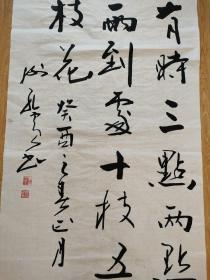 有時三點兩點
雨到處十枝五
枝花
癸酉之春正月